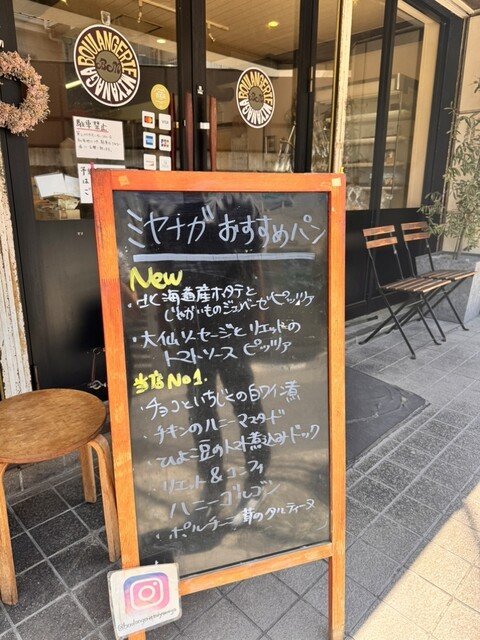 BOULANGERIE MIYANAGA
BOULANGERIE MIYANAGA
駐車禁止
ミヤナガ おすすめパン
New
・北海道産ホタテと
じゃがいものジェノベーゼピッツァ
・大仙ソーセージとリエットの
トマトソース ピッツァ
当店No1.
・チョコといちじくの白ワイン煮
・チキンのハニーマスタード
・ひよこ豆のトマト煮込みドック
・リエット&コンフィ
ハニーゴルゴンゾ
・ポルチーニ茸のタルティーヌ